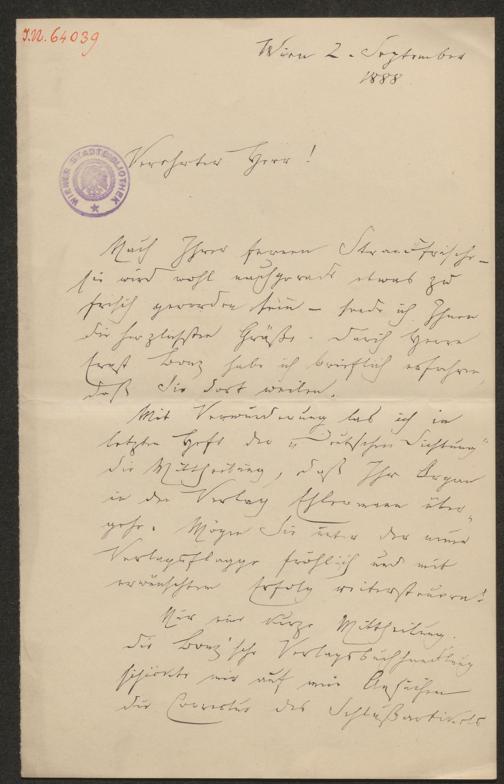 J.N. 64039
Wien 2. September
1888
WIENER STADTBIBLIOTHEK
Verehrter Herr!
Nach Ihrer fernen Strandfrische –
sie wird wohl nachgerade etwas zu
frisch geworden sein – sende ich Ihnen
die herzlichsten Grüße. Durch Herrn
Ernst Bonz habe ich brieflich erfahren,
daß Sie dort weilen.
Mit Verwunderung las ich im
letzten Heft der „Deutschen Dichtung"
die Mittheilung, daß Ihr Organ
in den Verlag Ehlermann über-
gehe. Mögen Sie unter der neuen
Verlagsflagge fröhlich und mit
erwünschtem Erfolg weitersteuern!
Nur eine kurze Mittheilung.
Die Bonz'sche Verlagsbuchhandlung
schickte mir auf mein Ansuchen
die Correctur des Schlußartikels